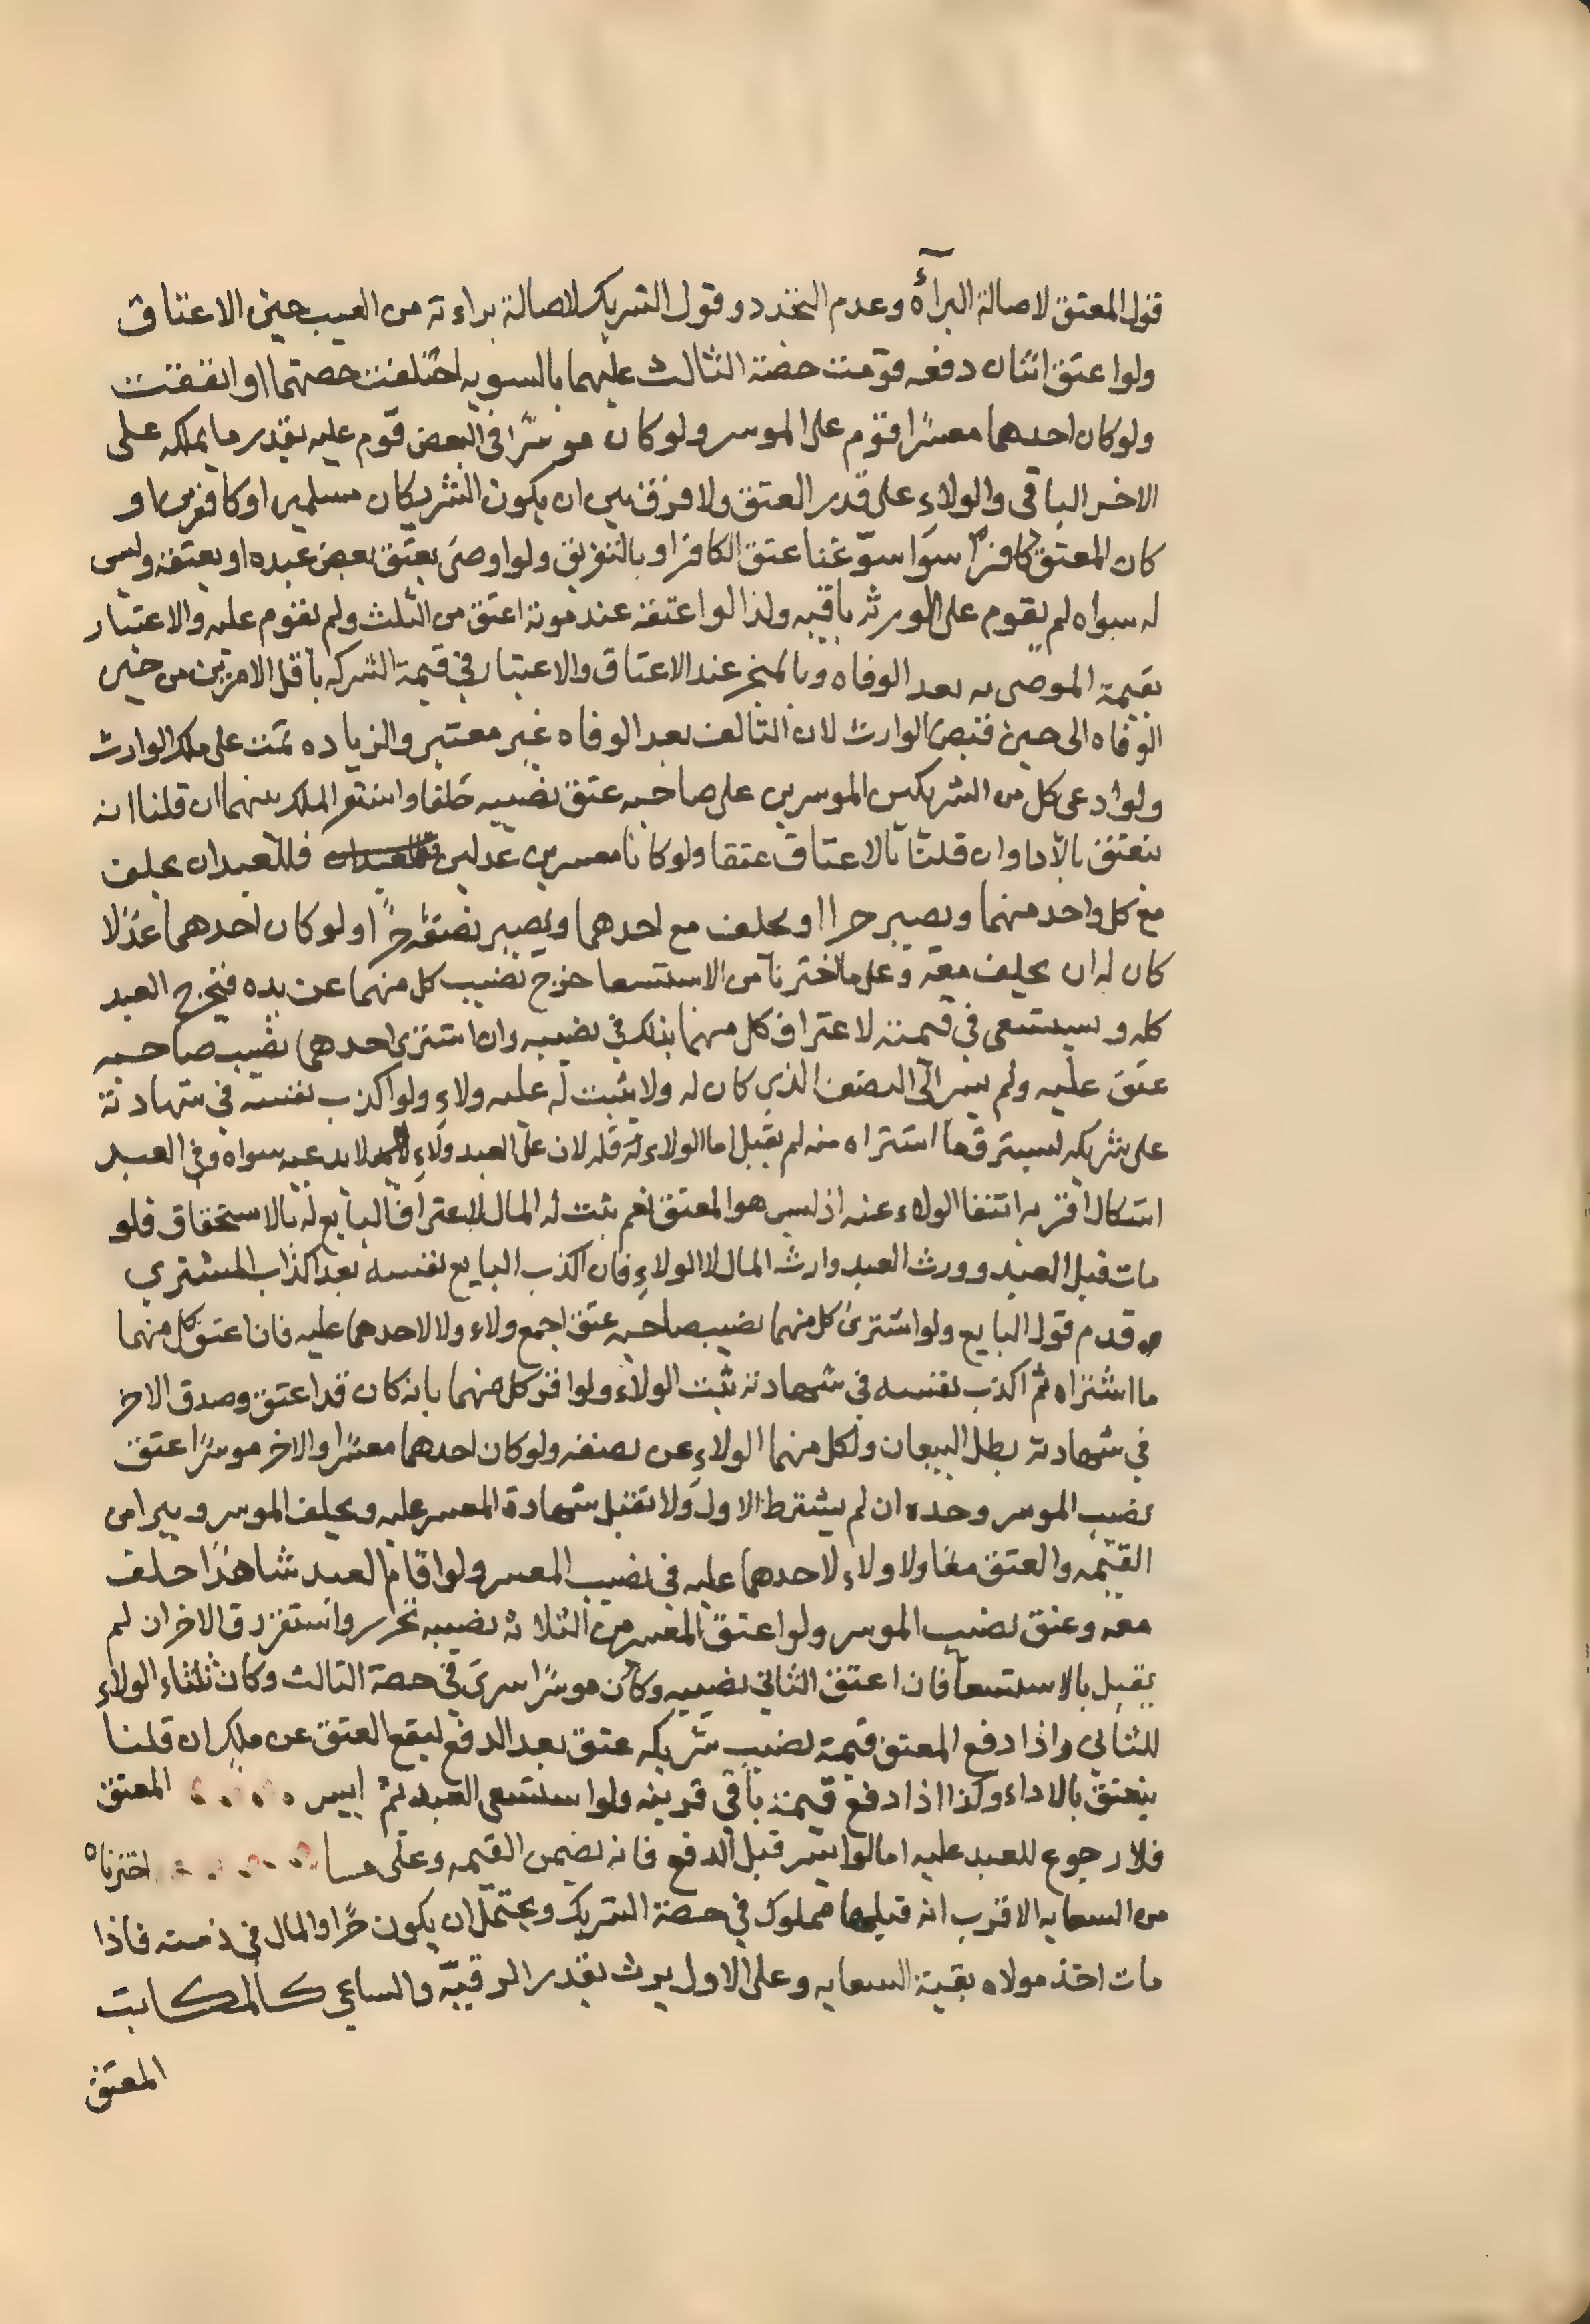 قول المعتق لاصالة البرآءة وعدم التجدد وقول الشريك لاصالة براءته من العيب حين الاعتاق
ولو اعتق اثنان دفعه قومت حصة الثالث عليهما بالسويه اختلفت حصتهما او اتفقت
ولو كان احدهما معسرًا قوم على الموسر ولو كان موسرًا في البعض قوم عليه بقدر ما يملكه على
الاخر الباقي والولاء على قدر العتق ولا فرق بين ان يكون الشريكان مسلمين او كافرين او
كان المعتق كافرا سوا سوّغنا عتق الكافر او بالتفريق ولو اوصى بعتق بعض عبده او بعتقه وليس
له سواه لم يقوم على الورثه باقيه ولذا لو اعتقه عند موته اعتق من الثلث ولم يقوم عليه والاعتبار
بقيمة الموصى به بعد الوفاه وبالمنجز عند الاعتاق والاعتبار في قيمة الشركه باقل الامرين من حين
الوفاه الى حين قبض الوارث لان التالف بعد الوفاه غير معتبر والزياده نمت على ملك الوارث
ولو ادعى كل من الشريكين الموسرين على صاحبه عتق نصيبه حلفا واستقر الملك بينهما ان قلنا انه
ينعتق بالاداء وان قلنا بالاعتاق عتقا ولو كانا معسرين عدلين فللعبد ان يحلف
مع كل واحد منهما ويصير حرا او يحلف مع احدهما ويصير نصفه حرًا ولو كان احدهما عدلا
كان له ان يحلف معه وعلى ما اخترنا من الاستسعا خرج نصيب كل منهما عن يده فيخرج العبد
كله ويستسعى في قيمته لاعتراف كل منهما بذلك في نصيبه وان اشترى احدهما نصيب صاحبه
عتق عليه ولم يسر الى النصف الذي كان له ولا يثبت له عليه ولاء ولو اكذب نفسه في شهادته
على شريكه ليسترق ما اشتراه منه لم يقبل اما الولاء فله لان على العبد ولاء لا يدعيه سواه وفي العبد
اشكال اقربه انتفا الولاء عنه اذ ليس هو المعتق نعم يثبت له المال لاعتراف البايع له بالاستحقاق فلو
مات قبل العبد وورث العبد وارث المال لا الولاء فان اكذب البايع نفسه بعد اكذاب المشتري
قدم قول البايع ولو اشترى كل منهما نصيب صاحبه عتق اجمع ولاء ولا لاحدهما عليه فان اعتق كل منهما
ما اشتراه ثم اكذب نفسه في شهادته ثبت الولاء ولو اقر كل منهما بانه كان قد اعتق وصدق الاخر
في شهادته بطل البيعان ولكل منهما الولاء عن نصفه ولو كان احدهما معسرًا والاخر موسرًا عتق
نصيب المعسر وحده ان لم يشترط الاول ولا تقبل شهادة المعسر عليه ويحلف الموسر ويبرا من
القيمه والعتق معا ولا ولاء لاحدهما عليه في نصيب المعسر ولو اقام العبد شاهدًا حلف
معه وعتق نصيب الموسر ولو اعتق المعسر من الثلاثه نصيبه تحرر واستقر رق الاخر ان لم
يقبل بالاستسعا فان اعتق الثاني نصيبه وكان موسرًا سرى في حصة الثالث وكان ثلثاء الولاء
للثاني واذا دفع المعتق قيمة نصيب شريكه عتق بعد الدفع ليقع العتق عن ملك ان قلنا
ينعتق بالاداء وكذا اذا دفع قيمة باقي قريبه ولو استسعى العبد ثم ايسر المعتق
فلا رجوع للعبد عليه اما لو ايسر قبل الدفع فانه يضمن القيمه وعلى ما اخترناه
من السعايه الاقرب انه قبلها مملوك في حصة الشريك ويحتمل ان يكون حرًا والمال في ذمته فاذا
مات اخذ مولاه بقية السعايه وعلى الاول يرث بقدر الرقيه والساعي كالمكاتب
المعتق